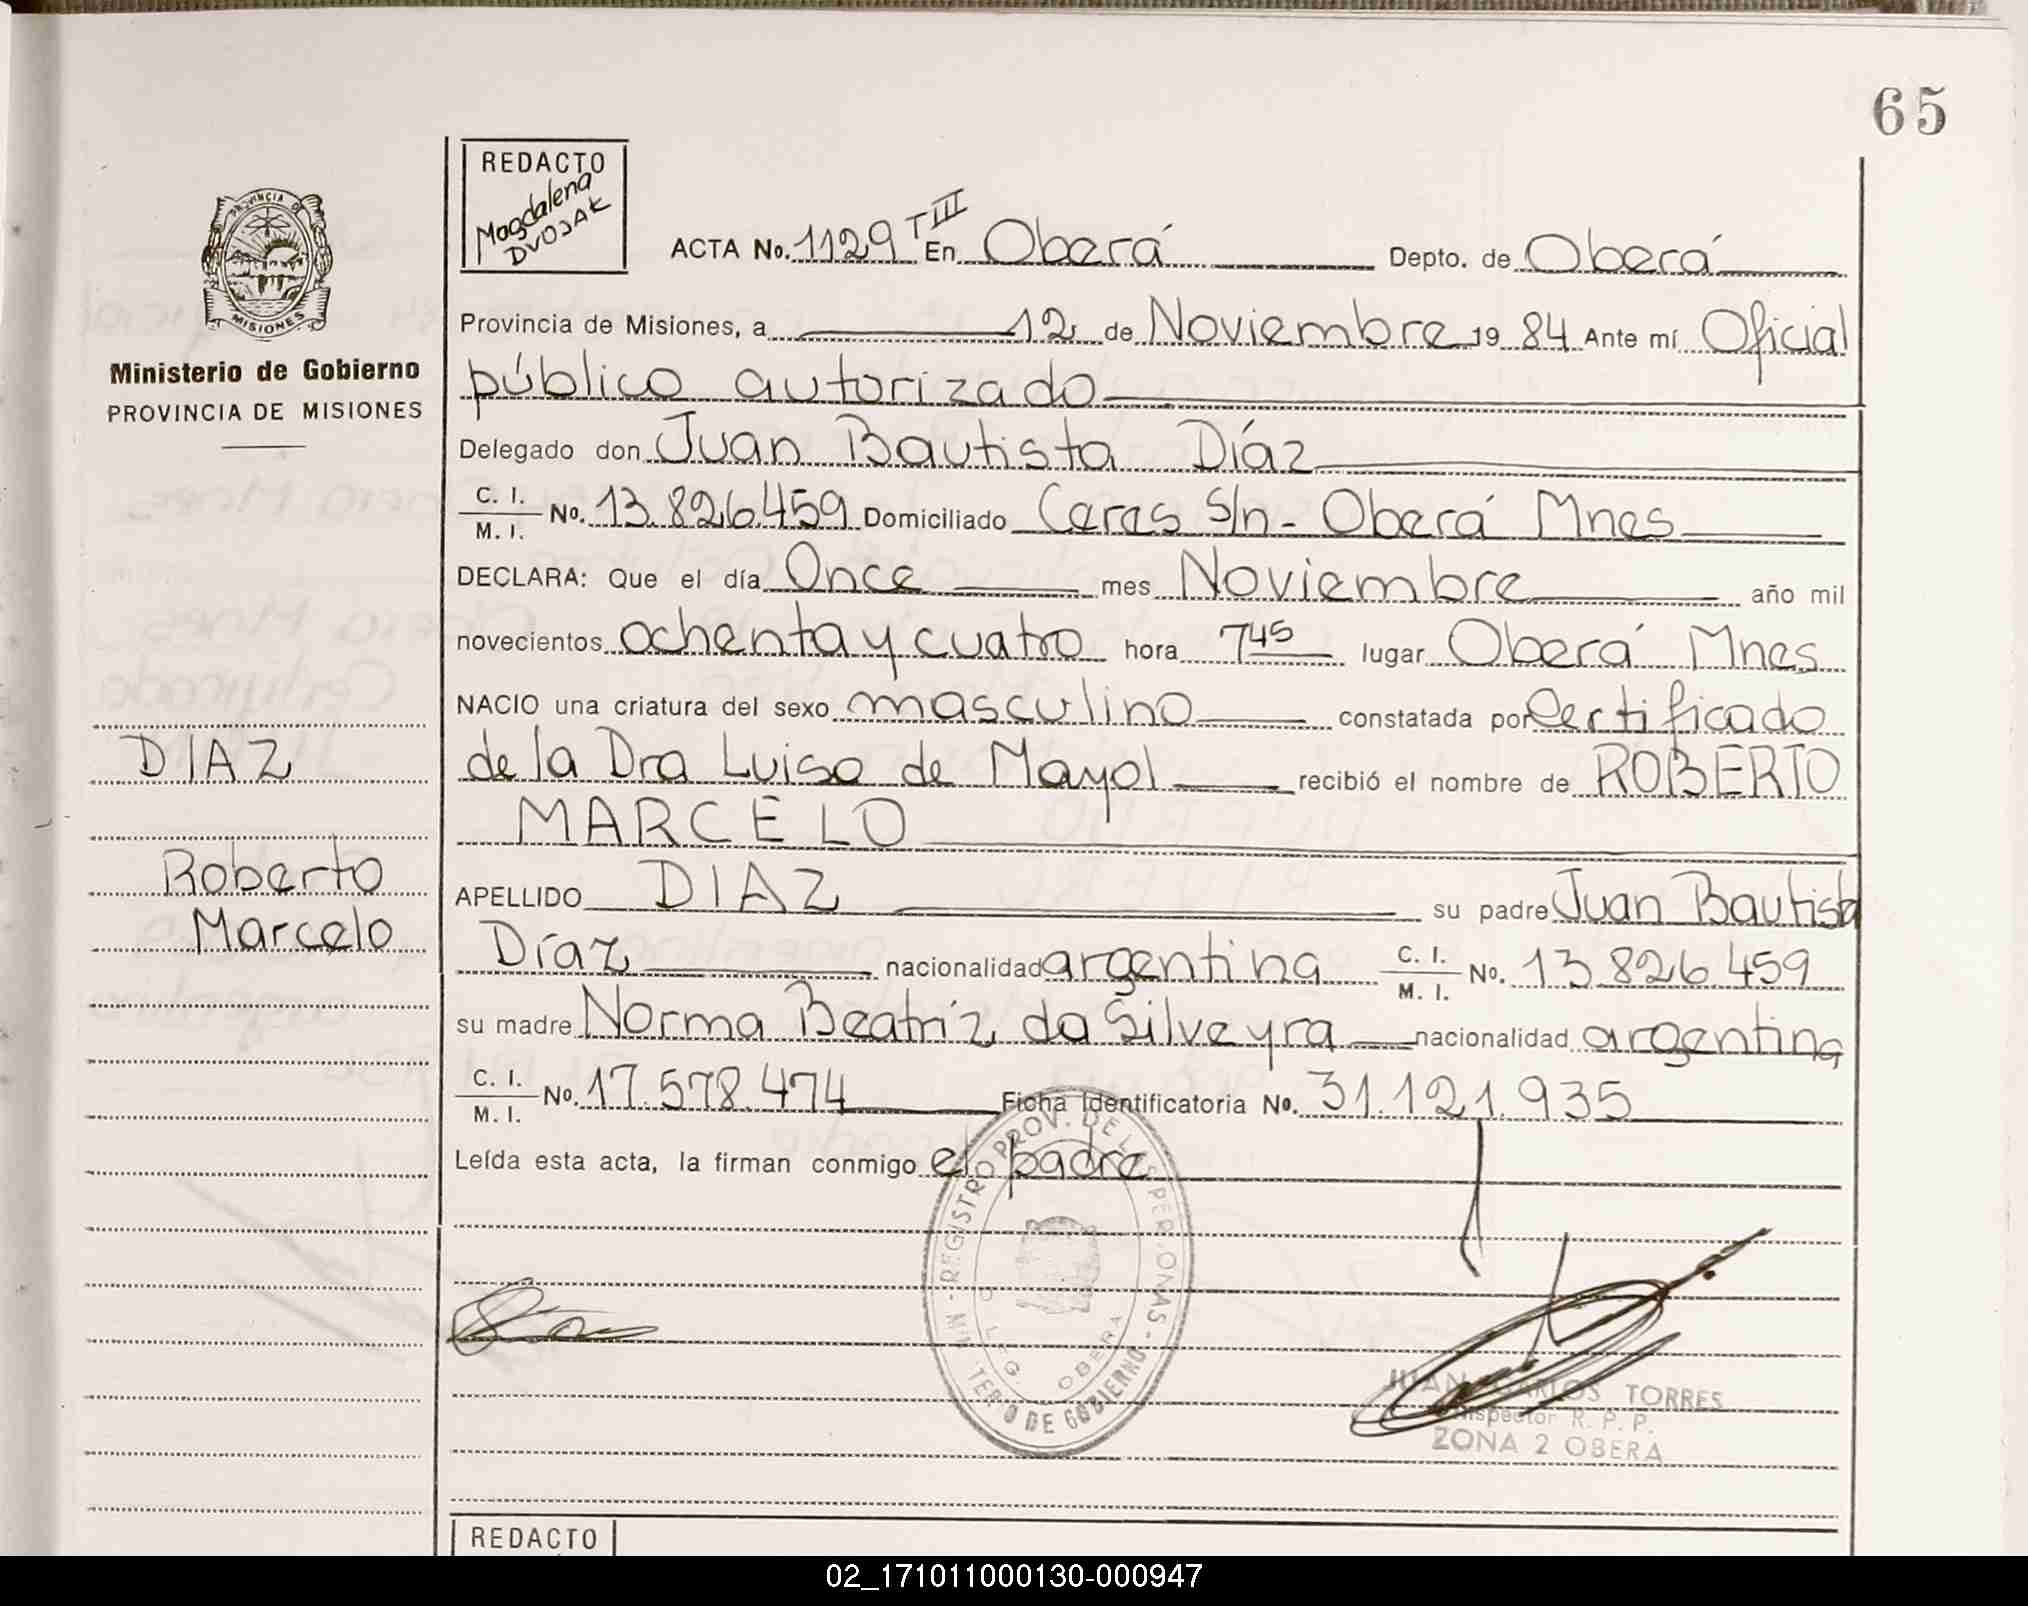 65
REDACTO
Magdalena
DVOJAK
PROVINCIA DE
MISIONES
Ministerio de Gobierno
PROVINCIA DE MISIONES
ACTA No. 1129 TIII En Oberá Depto. de Oberá
Provincia de Misiones, a 12 de Noviembre 19 84 Ante mí Oficial
público autorizado
Delegado don Juan Bautista Díaz
C. I.
M. I. No. 13.826.459 Domiciliado Ceras S/n - Oberá Mnes
DECLARA: Que el día Once mes Noviembre año mil
novecientos ochenta y cuatro hora 7 45 lugar Oberá Mnes
NACIO una criatura del sexo masculino constatada por Certificado
de la Dra Luisa de Mayol recibió el nombre de ROBERTO
MARCELO
APELLIDO DIAZ su padre Juan Bautista
Díaz nacionalidad argentina C. I.
M. I. No. 13.826.459
su madre Norma Beatriz da Silveyra nacionalidad argentina
C. I.
M. I. No. 17.578.474 Ficha Identificatoria No. 31.121.935
Leída esta acta, la firman conmigo el padre
DIAZ
Roberto
Marcelo
REGISTRO PROV. DE LAS PERSONAS -
MINISTERIO DE GOBIERNO
DELEG OBERA
JUAN CARLOS TORRES
Inspector R. P. P.
ZONA 2 OBERA
REDACTO
02_171011000130-000947